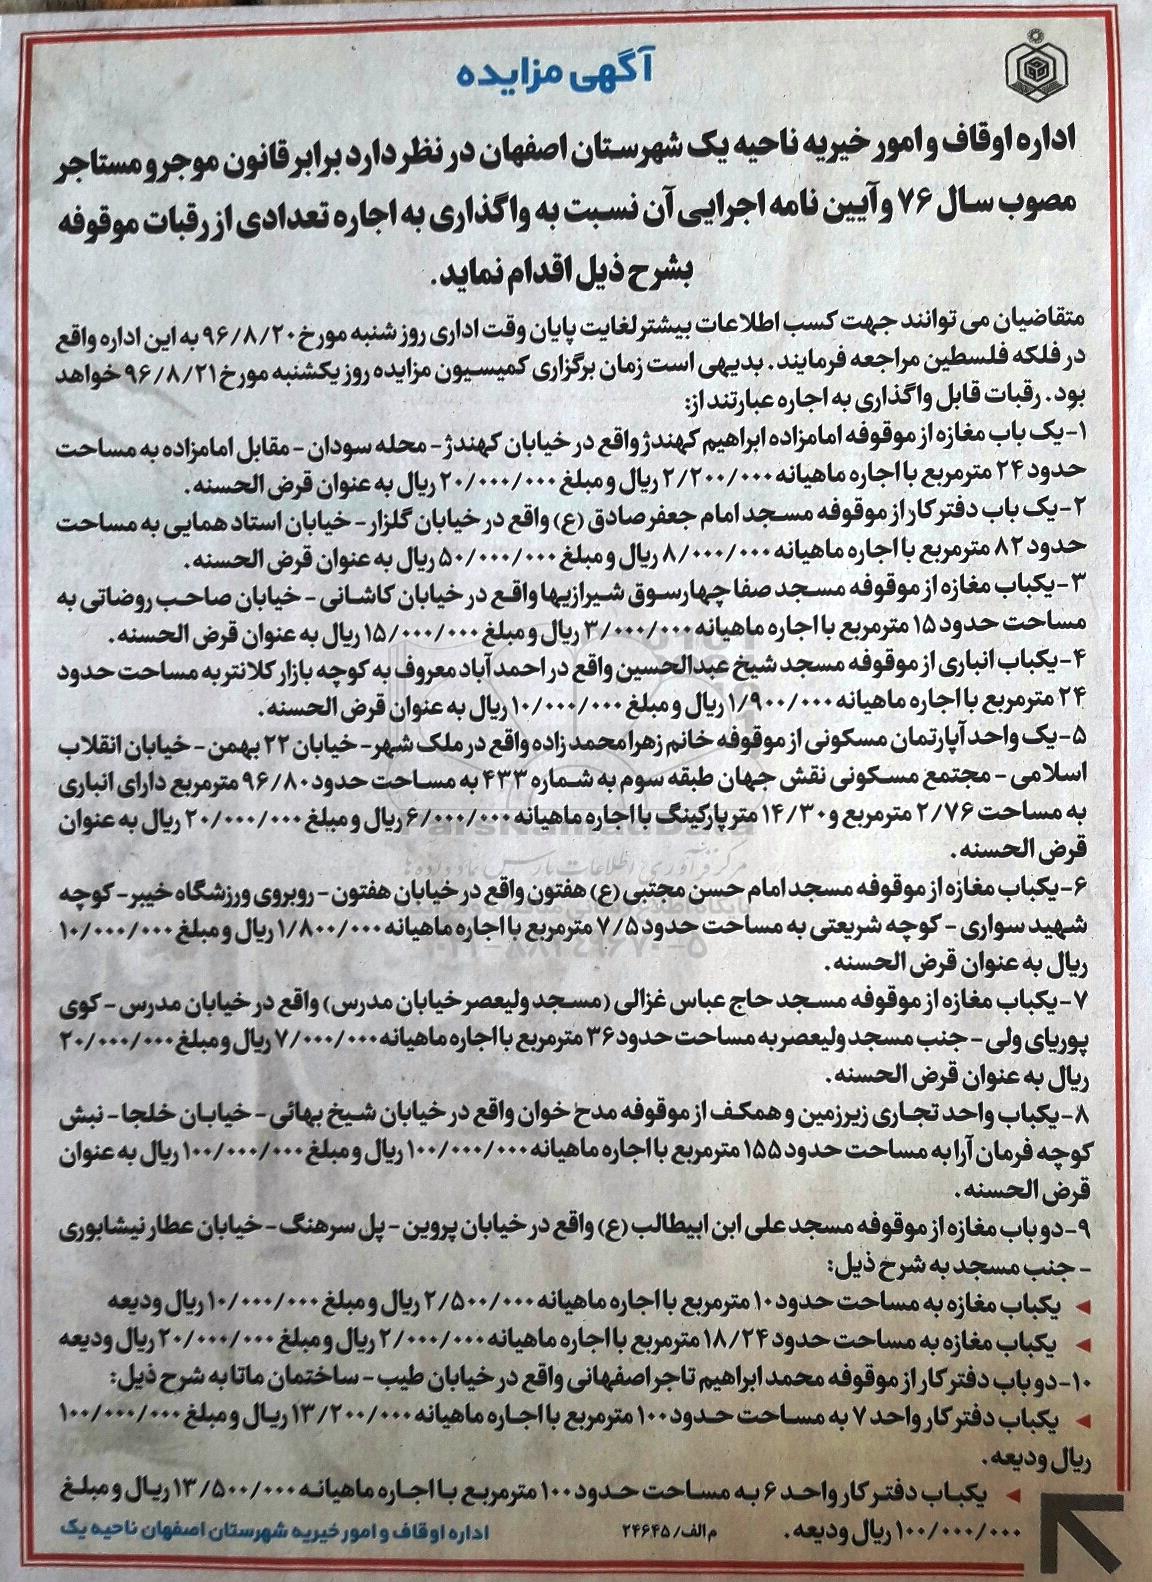 آگهی مزایده
اداره اوقاف و امور خیریه ناحیه یک شهرستان اصفهان در نظر دارد برابر قانون موجر و مستاجر
مصوب سال ۷۶ و آیین نامه اجرایی آن نسبت به واگذاری به اجاره تعدادی از رقبات موقوفه
بشرح ذیل اقدام نماید.
متقاضیان می توانند جهت کسب اطلاعات بیشتر لغایت پایان وقت اداری روز شنبه مورخ ۹۶/۸/۲۰ به این اداره واقع
در فلکه فلسطین مراجعه فرمایند. بدیهی است زمان برگزاری کمیسیون مزایده روز یکشنبه مورخ ۹۶/۸/۲۱ خواهد
بود. رقبات قابل واگذاری به اجاره عبارتند از:
۱-یک باب مغازه از موقوفه امامزاده ابراهیم کهندژ واقع در خیابان کهندژ - محله سودان - مقابل امامزاده به مساحت
حدود ۲۴ مترمربع با اجاره ماهیانه ۲/۲۰۰/۰۰۰ ریال و مبلغ ۲۰/۰۰۰/۰۰۰ ریال به عنوان قرض الحسنه.
۲-یک باب دفتر کار از موقوفه مسجد امام جعفر صادق (ع) واقع در خیابان گلزار - خیابان استاد همایی به مساحت
حدود ۸۲ مترمربع با اجاره ماهیانه ۸/۰۰۰/۰۰۰ ریال و مبلغ ۵۰/۰۰۰/۰۰۰ ریال به عنوان قرض الحسنه.
۳-یکباب مغازه از موقوفه مسجد صفا چهارسوق شیرازیها واقع در خیابان کاشانی - خیابان صاحب روضاتی به
مساحت حدود ۱۵ مترمربع با اجاره ماهیانه ۳/۰۰۰/۰۰۰ ریال و مبلغ ۱۵/۰۰۰/۰۰۰ ریال به عنوان قرض الحسنه.
۴-یکباب انباری از موقوفه مسجد شیخ عبدالحسین واقع در احمدآباد معروف به کوچه بازار کلانتر به مساحت حدود
۲۴ مترمربع با اجاره ماهیانه ۱/۹۰۰/۰۰۰ ریال و مبلغ ۱۰/۰۰۰/۰۰۰ ریال به عنوان قرض الحسنه.
۵-یک واحد آپارتمان مسکونی از موقوفه خانم زهرا محمدزاده واقع در ملک شهر - خیابان ۲۲ بهمن - خیابان انقلاب
اسلامی - مجتمع مسکونی نقش جهان طبقه سوم به شماره ۴۳۳ به مساحت حدود ۹۶/۸۰ مترمربع دارای انباری
به مساحت ۲/۷۶ مترمربع و ۱۴/۳۰ متر پارکینگ با اجاره ماهیانه ۶/۰۰۰/۰۰۰ ریال و مبلغ ۲۰/۰۰۰/۰۰۰ ریال به عنوان
قرض الحسنه.
۶-یکباب مغازه از موقوفه مسجد امام حسن مجتبی (ع) هفتون واقع در خیابان هفتون - روبروی ورزشگاه خیبر - کوچه
شهید سواری - کوچه شریعتی به مساحت حدود ۷/۵ مترمربع با اجاره ماهیانه ۱/۸۰۰/۰۰۰ ریال و مبلغ ۱۰/۰۰۰/۰۰۰
ریال به عنوان قرض الحسنه.
۷-یکباب مغازه از موقوفه مسجد حاج عباس غزالی (مسجد ولیعصر خیابان مدرس) واقع در خیابان مدرس - کوی
پوریای ولی - جنب مسجد ولیعصر به مساحت حدود ۳۶ مترمربع با اجاره ماهیانه ۷/۰۰۰/۰۰۰ ریال و مبلغ ۲۰/۰۰۰/۰۰۰
ریال به عنوان قرض الحسنه.
۸-یکباب واحد تجاری زیرزمین و همکف از موقوفه مدح خوان واقع در خیابان شیخ بهائی - خیابان خلجا - نبش
کوچه فرمان آرا به مساحت حدود ۱۵۵ مترمربع با اجاره ماهیانه ۱۰۰/۰۰۰/۰۰۰ ریال و مبلغ ۱۰۰/۰۰۰/۰۰۰ ریال به عنوان
قرض الحسنه.
۹-دو باب مغازه از موقوفه مسجد علی ابن ابیطالب (ع) واقع در خیابان پروین - پل سرهنگ - خیابان عطار نیشابوری
- جنب مسجد به شرح ذیل:
◄ یکباب مغازه به مساحت حدود ۱۰ مترمربع با اجاره ماهیانه ۲/۵۰۰/۰۰۰ ریال و مبلغ ۱۰/۰۰۰/۰۰۰ ریال ودیعه
◄ یکباب مغازه به مساحت حدود ۱۸/۲۴ مترمربع با اجاره ماهیانه ۲/۰۰۰/۰۰۰ ریال و مبلغ ۲۰/۰۰۰/۰۰۰ ریال ودیعه
۱۰-دو باب دفتر کار از موقوفه محمد ابراهیم تاجر اصفهانی واقع در خیابان طیب - ساختمان ماتا به شرح ذیل:
◄ یکباب دفتر کار واحد ۷ به مساحت حدود ۱۰۰ مترمربع با اجاره ماهیانه ۱۳/۲۰۰/۰۰۰ ریال و مبلغ ۱۰۰/۰۰۰/۰۰۰
ریال ودیعه.
◄ یکباب دفتر کار واحد ۶ به مساحت حدود ۱۰۰ مترمربع با اجاره ماهیانه ۱۳/۵۰۰/۰۰۰ ریال و مبلغ
۱۰۰/۰۰۰/۰۰۰ ریال ودیعه. م الف/ ۲۴۶۴۵ اداره اوقاف و امور خیریه شهرستان اصفهان ناحیه یک